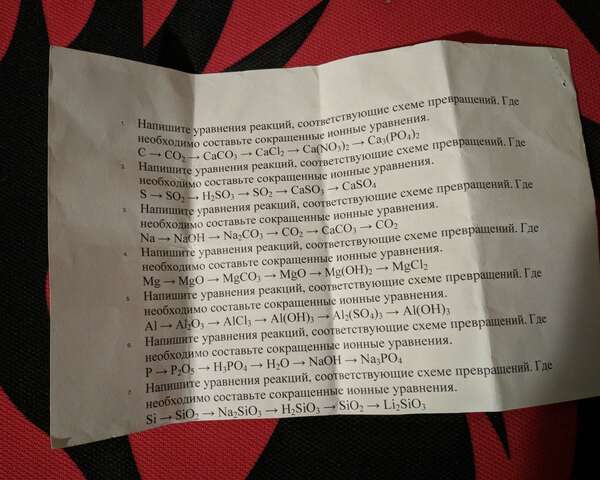 1. Напишите уравнения реакций, соответствующие схеме превращений. Где
необходимо составьте сокращенные ионные уравнения.
C → CO₂ → CaCO₃ → CaCl₂ → Ca(NO₃)₂ → Ca₃(PO₄)₂
2. Напишите уравнения реакций, соответствующие схеме превращений. Где
необходимо составьте сокращенные ионные уравнения.
S → SO₂ → H₂SO₃ → SO₂ → CaSO₃ → CaSO₄
3. Напишите уравнения реакций, соответствующие схеме превращений. Где
необходимо составьте сокращенные ионные уравнения.
Na → NaOH → Na₂CO₃ → CO₂ → CaCO₃ → CO₂
4. Напишите уравнения реакций, соответствующие схеме превращений. Где
необходимо составьте сокращенные ионные уравнения.
Mg → MgO → MgCO₃ → MgO → Mg(OH)₂ → MgCl₂
5. Напишите уравнения реакций, соответствующие схеме превращений. Где
необходимо составьте сокращенные ионные уравнения.
Al → Al₂O₃ → AlCl₃ → Al(OH)₃ → Al₂(SO₄)₃ → Al(OH)₃
6. Напишите уравнения реакций, соответствующие схеме превращений. Где
необходимо составьте сокращенные ионные уравнения.
P → P₂O₅ → H₃PO₄ → H₂O → NaOH → Na₃PO₄
7. Напишите уравнения реакций, соответствующие схеме превращений. Где
необходимо составьте сокращенные ионные уравнения.
Si → SiO₂ → Na₂SiO₃ → H₂SiO₃ → SiO₂ → Li₂SiO₃